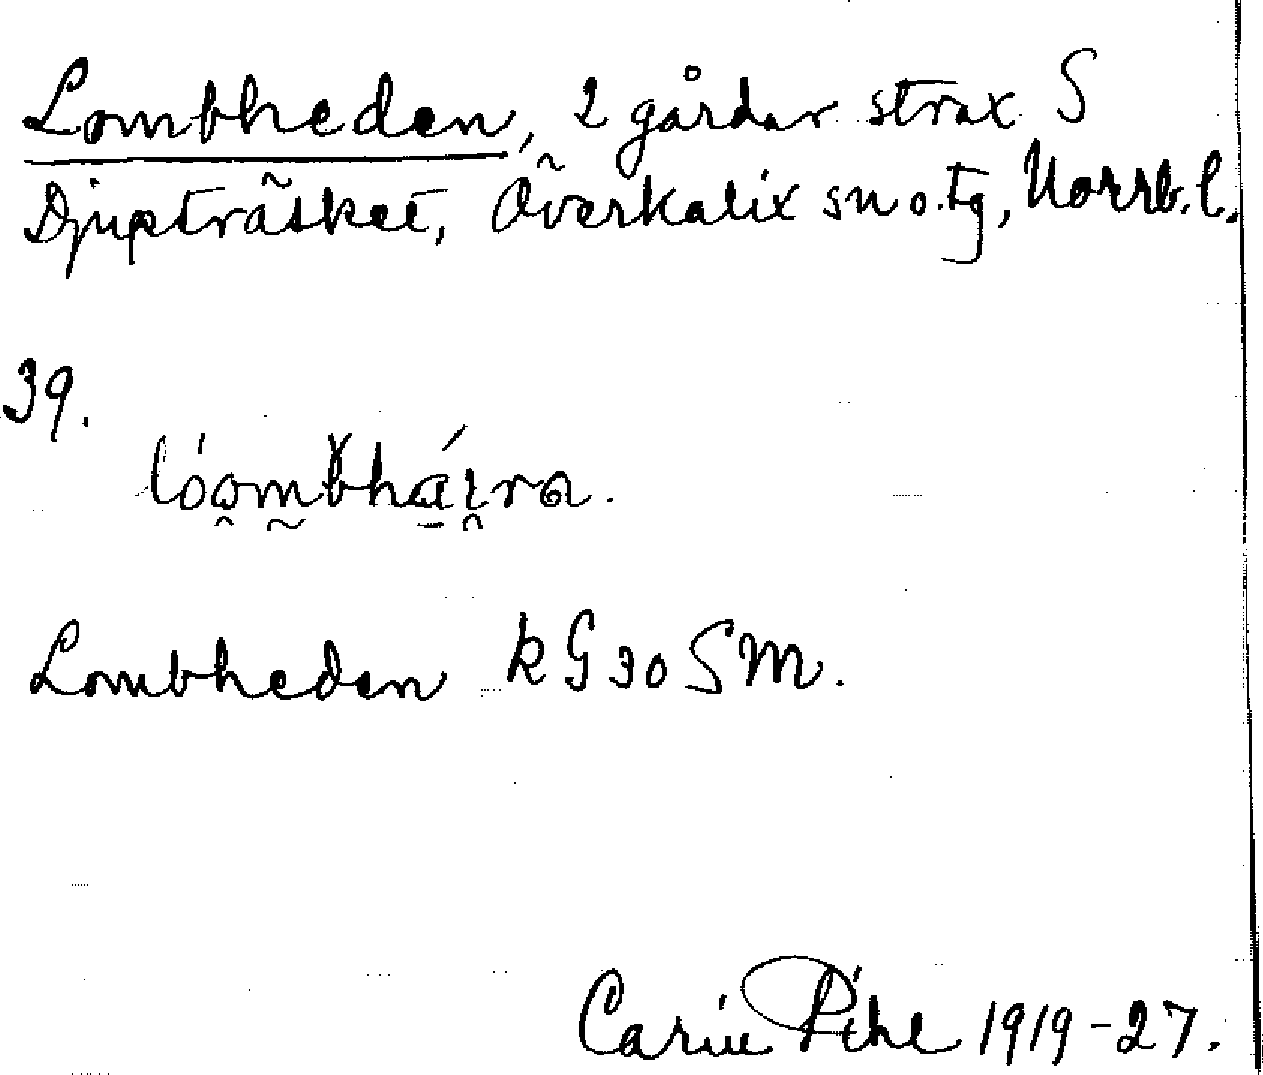 Lombheden, 2 gårdar strax S
Djupträsket, Överkalix sn o. tg, Norrb. l.
39.
lóo̯m̰bhá̱i̯ra.
Lombheden kG 30 SM.
Carin Pihl 1919-27.